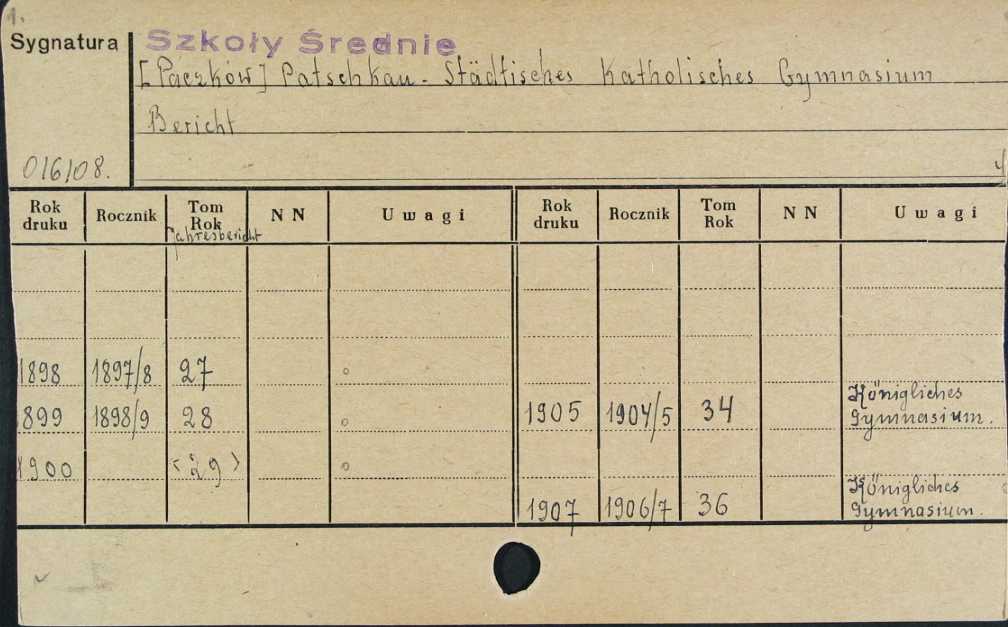 1.
Sygnatura Szkoły Średnie
[Paczków] Patschkau - Städtisches Katholisches Gymnasium
Bericht
016/08.
Rok druku Rocznik Tom Rok N N U w a g i Rok druku Rocznik Tom Rok N N U w a g i
Jahresbericht
1898 1897/8 27
899 1898/9 28 1905 1904/5 34 Königliches Gymnasium.
1900 <29>
1907 1906/7 36 Königliches Gymnasium.